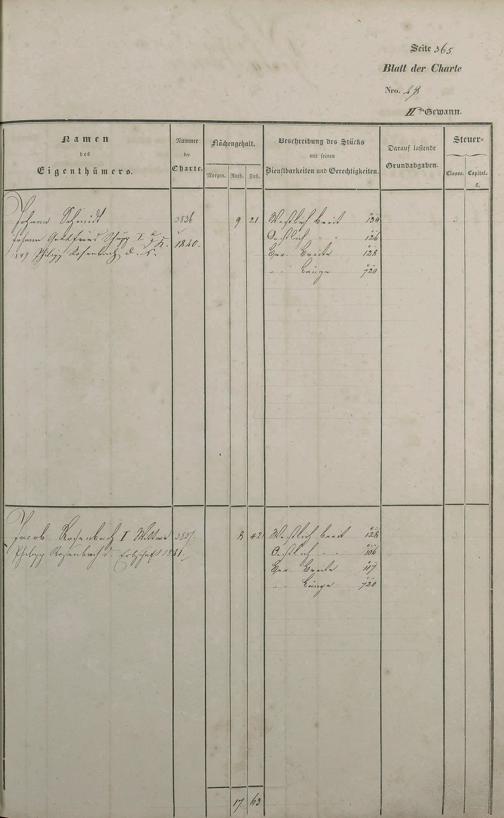 Seite 365
Blatt der Charte
Nro. 48
II te Gewann.
Namen des Eigenthümers.
Nummer der Charte.
Flächengehalt.
Morgen. Ruth. Fuß.
Beschreibung des Stücks mit seinen Dienstbarkeiten und Gerechtigkeiten.
Darauf lastende Grundabgaben.
Steuer-
Classe. Capital.
Johann Schmidt 3836 9 21 Westlich breit 134
Johann Gottfried 1840. Oestlich " 126
Philipp Rosenbach Ger. Breite 128
" Länge 720
Jacob Rosenbach I Wittwe 8 42 Westlich breit 128
Philipp Rosenbach Erbschaft 1841. Oestlich " 106
Ger. Breite 117
" Länge 720
17 63